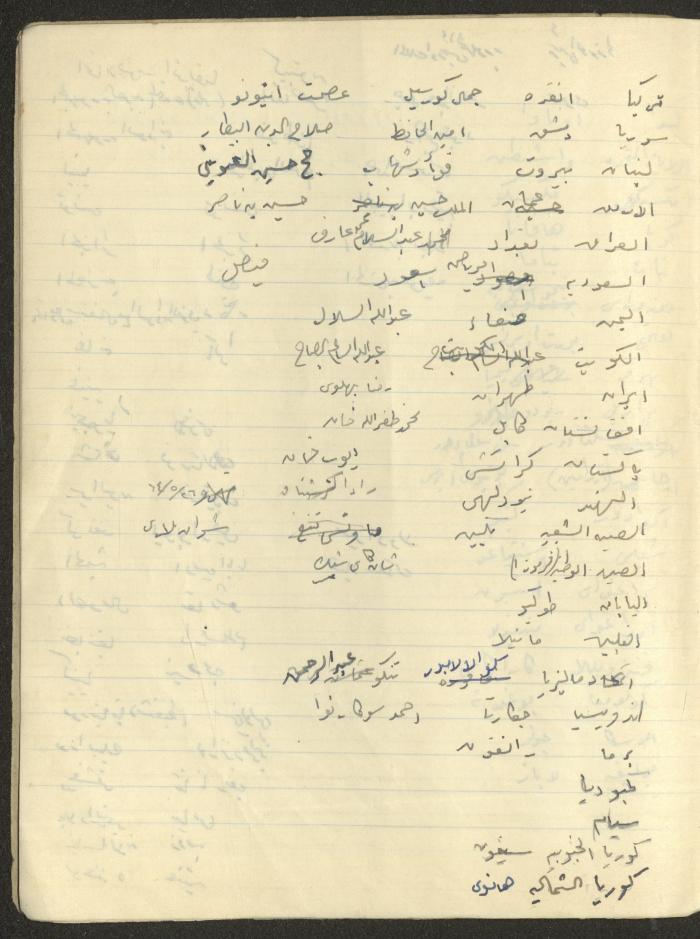 تركيا انقره جمال كورسيل عصمت اينونو
سوريا دمشق امين الحافظ صلاح الدين البيطار
لبنان بيروت فؤاد شهاب حسين العويني
الاردن عمان الملك حسين حسين بن ناصر
العراق بغداد عبد السلام عارف
السعودية الرياض سعود فيصل
اليمن صنعاء عبدالله السلال
الكويت عبدالله السالم الصباح
ايران طهران رضا بهلوي
افغانستان كابل محمد ظفر الله خان
باكستان كراتشي ايوب خان
الهند نيودلهي رادا كرشنان
الصين الشعبية بكين ماوتسي تنغ
الصين الوطنية (فرموزا) شان كاي شيك
اليابان طوكيو
الفلبين مانيلا
اتحاد ماليزيا كوالالامبور تنكو عبد الرحمن
اندونيسيا جكارتا احمد سوكارنوا
برما رانغون
كمبوديا
سيام
كوريا الجنوبية سيغون
كوريا الشمالية هانوي